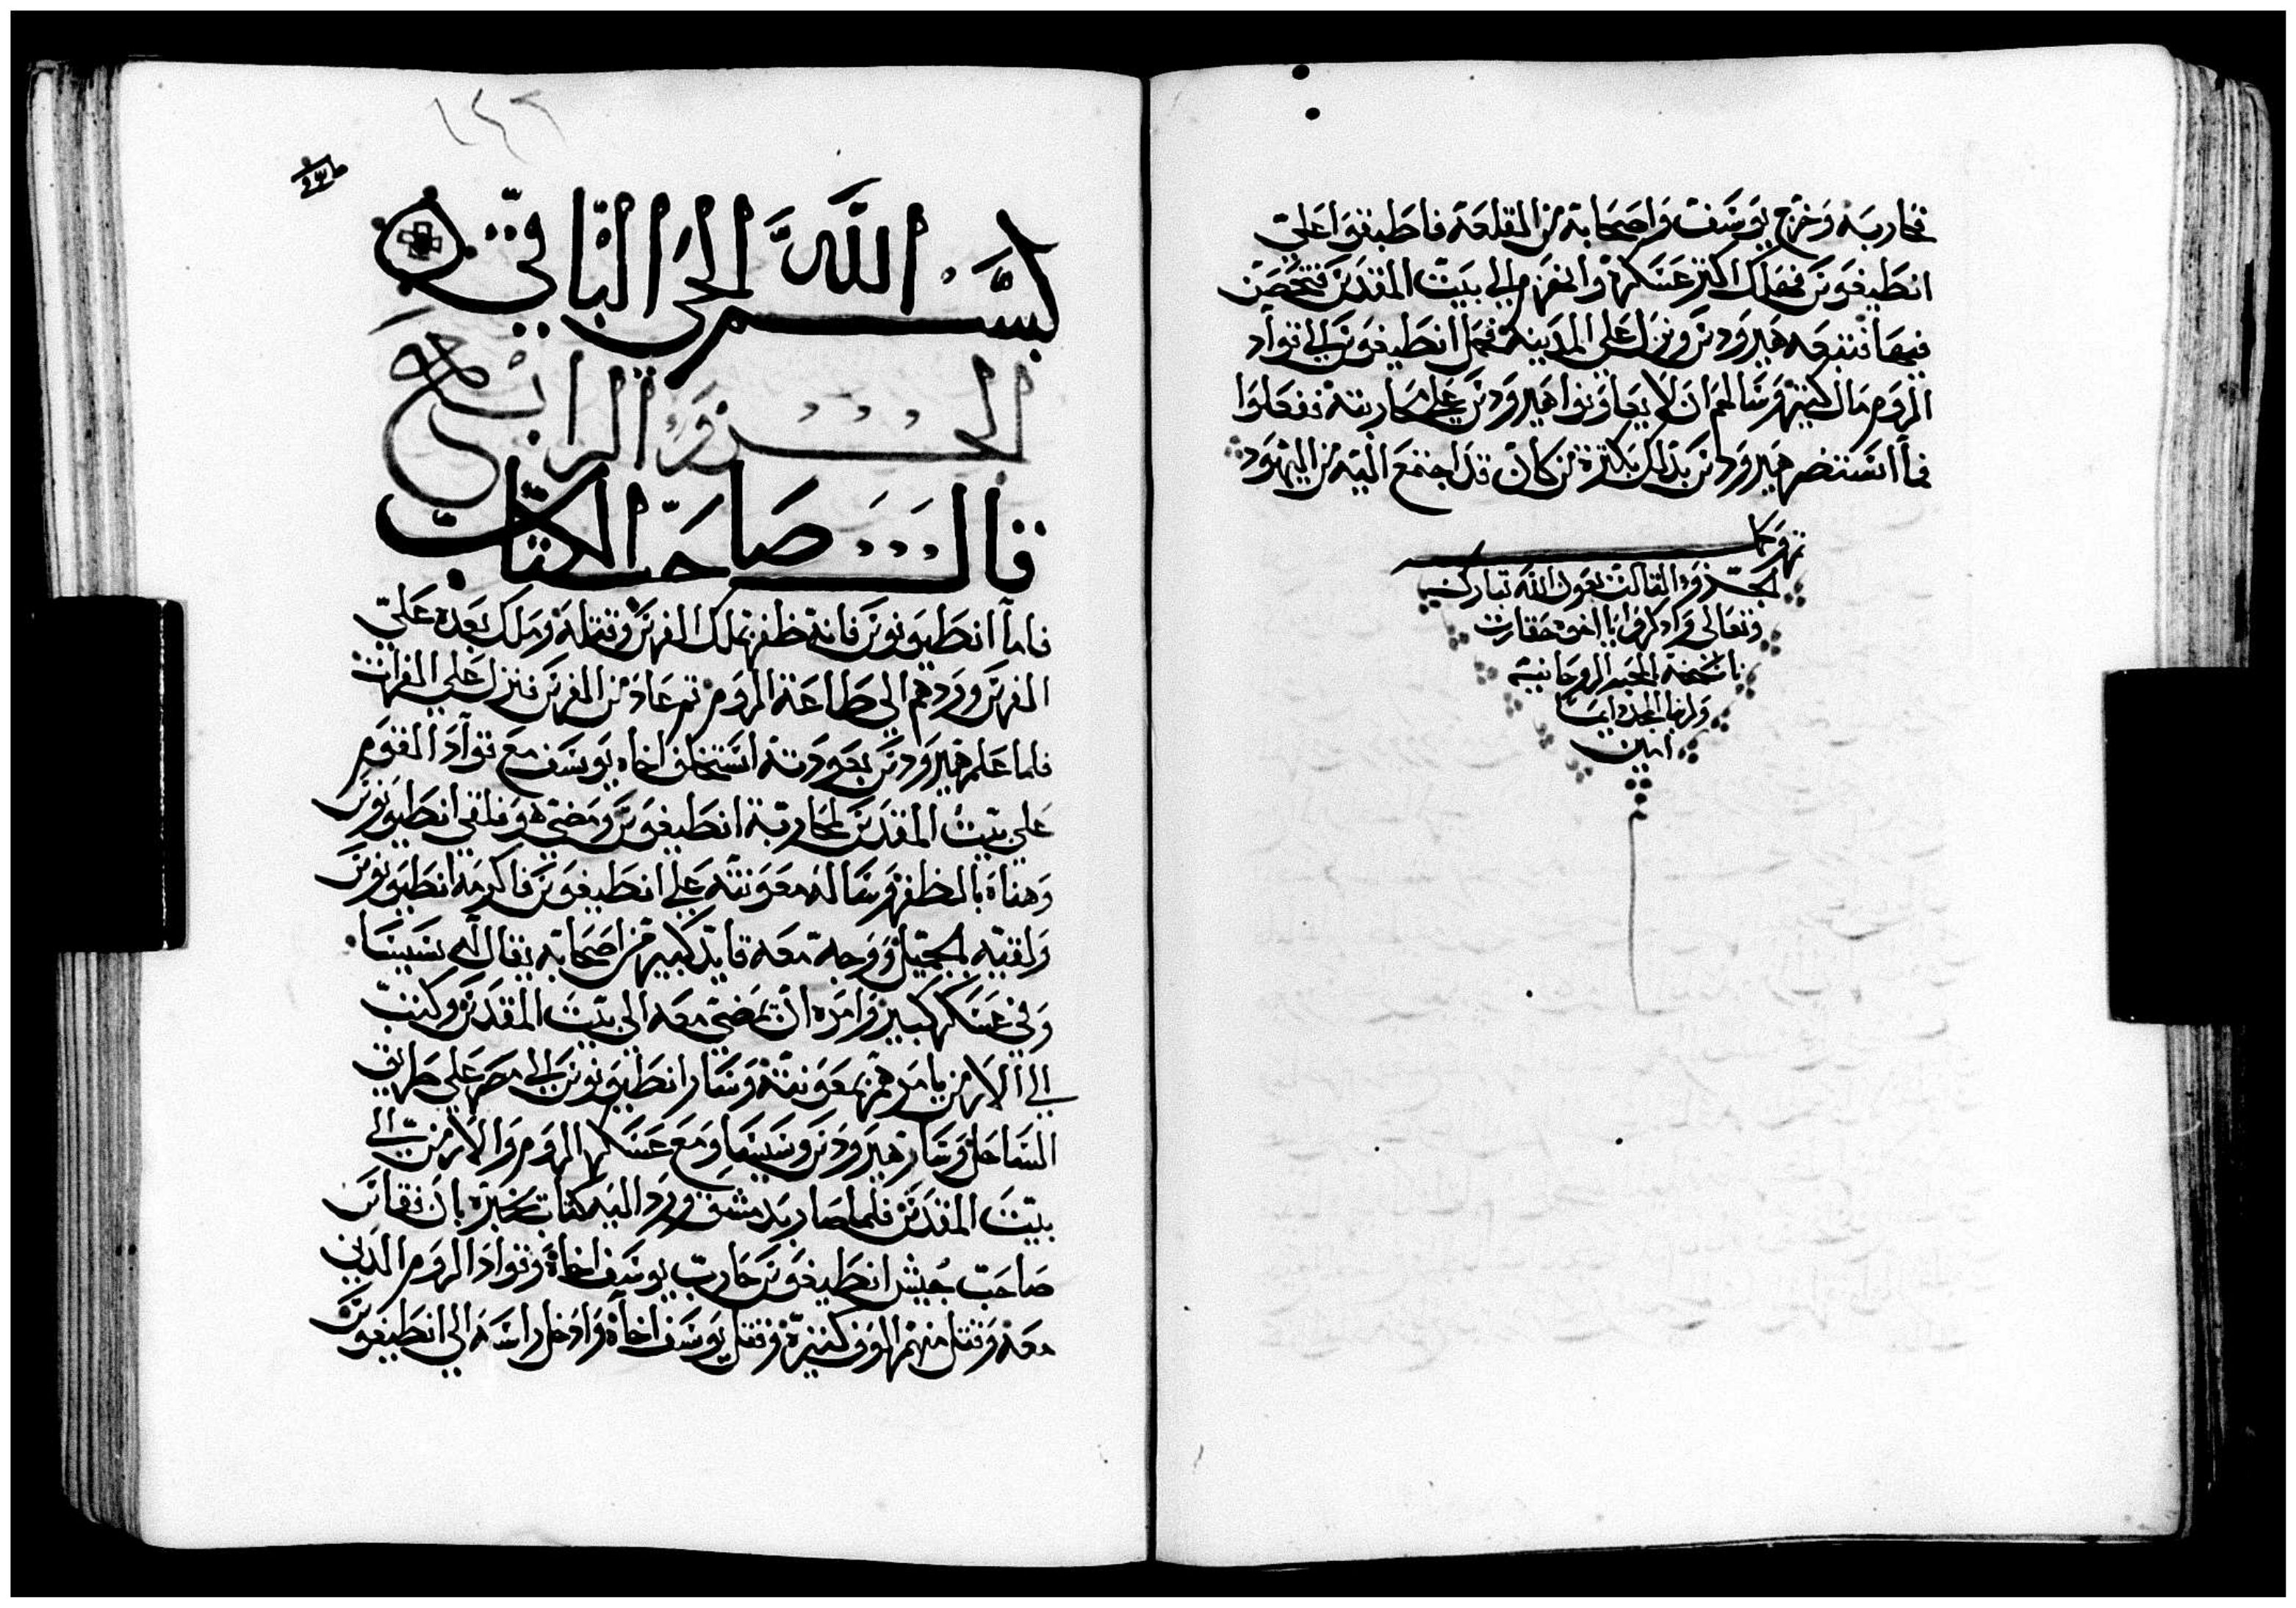 فحاربه وخرج يوسف واصحابه من القلعة فاطبقوا علي
انطيغوس فهلك اكثر عسكره وانهزم الي بيت المقدس فتحصن
فيها فتبعه هيرودس ونزل علي المدينة فحمل انطيغوس الي قواد
الروم مال كثير وسالهم ان لا يعاونوا هيرودس علي محاربته ففعلوا
فاستنصر هيرودس بذلك بكثرة من كان قد اجتمع اليه من اليهود
تم وكمل
الجزو التالت بعون الله تبارك
وتعالي واذكروا يا اخوه حقارت
ناسخه بالمحبه الروحانيه
ولربنا المجد دايما
امين
١٤٢
بسم الله الحي الباقي
الجزو الرابع
قال صاحب الكتاب
فاما انطيونوس فانه ظفر بملك الفرس وقتله وملك بعده علي
الفرس وردهم الي طاعة الروم ثم عاد من الفرس فنزل علي الفرات
فلما علم هيرودس بعودته استخلف اخاه يوسف مع قواد القوم
علي بيت المقدس لمحاربة انطيغوس ومضي هو فلقي انطيونوس
وهناه بالظفر وساله معونته علي انطيغوس فاكرمه انطيونوس
ولقيه بالجميل ووجه معه قايد كبير من اصحابه يقال له سيسا
وفي عسكر كبير وامره ان يمضي معه الي بيت المقدس وكتب
الي الارمن يامرهم بمعونته وسار انطيونوس الي مصر علي طريق
الساحل وسار هيرودس وسيسا ومع عسكر الروم والارمن الي
بيت المقدس فلما صار بدمشق ورد اليه كتاب يخبره بان فقاس
صاحب جيش انطيغوس حارب يوسف اخاه وقواد الروم الذين
معه وقتل منهم الوف كثيرة وقتل يوسف اخاه وادخل راسه الي انطيغوس